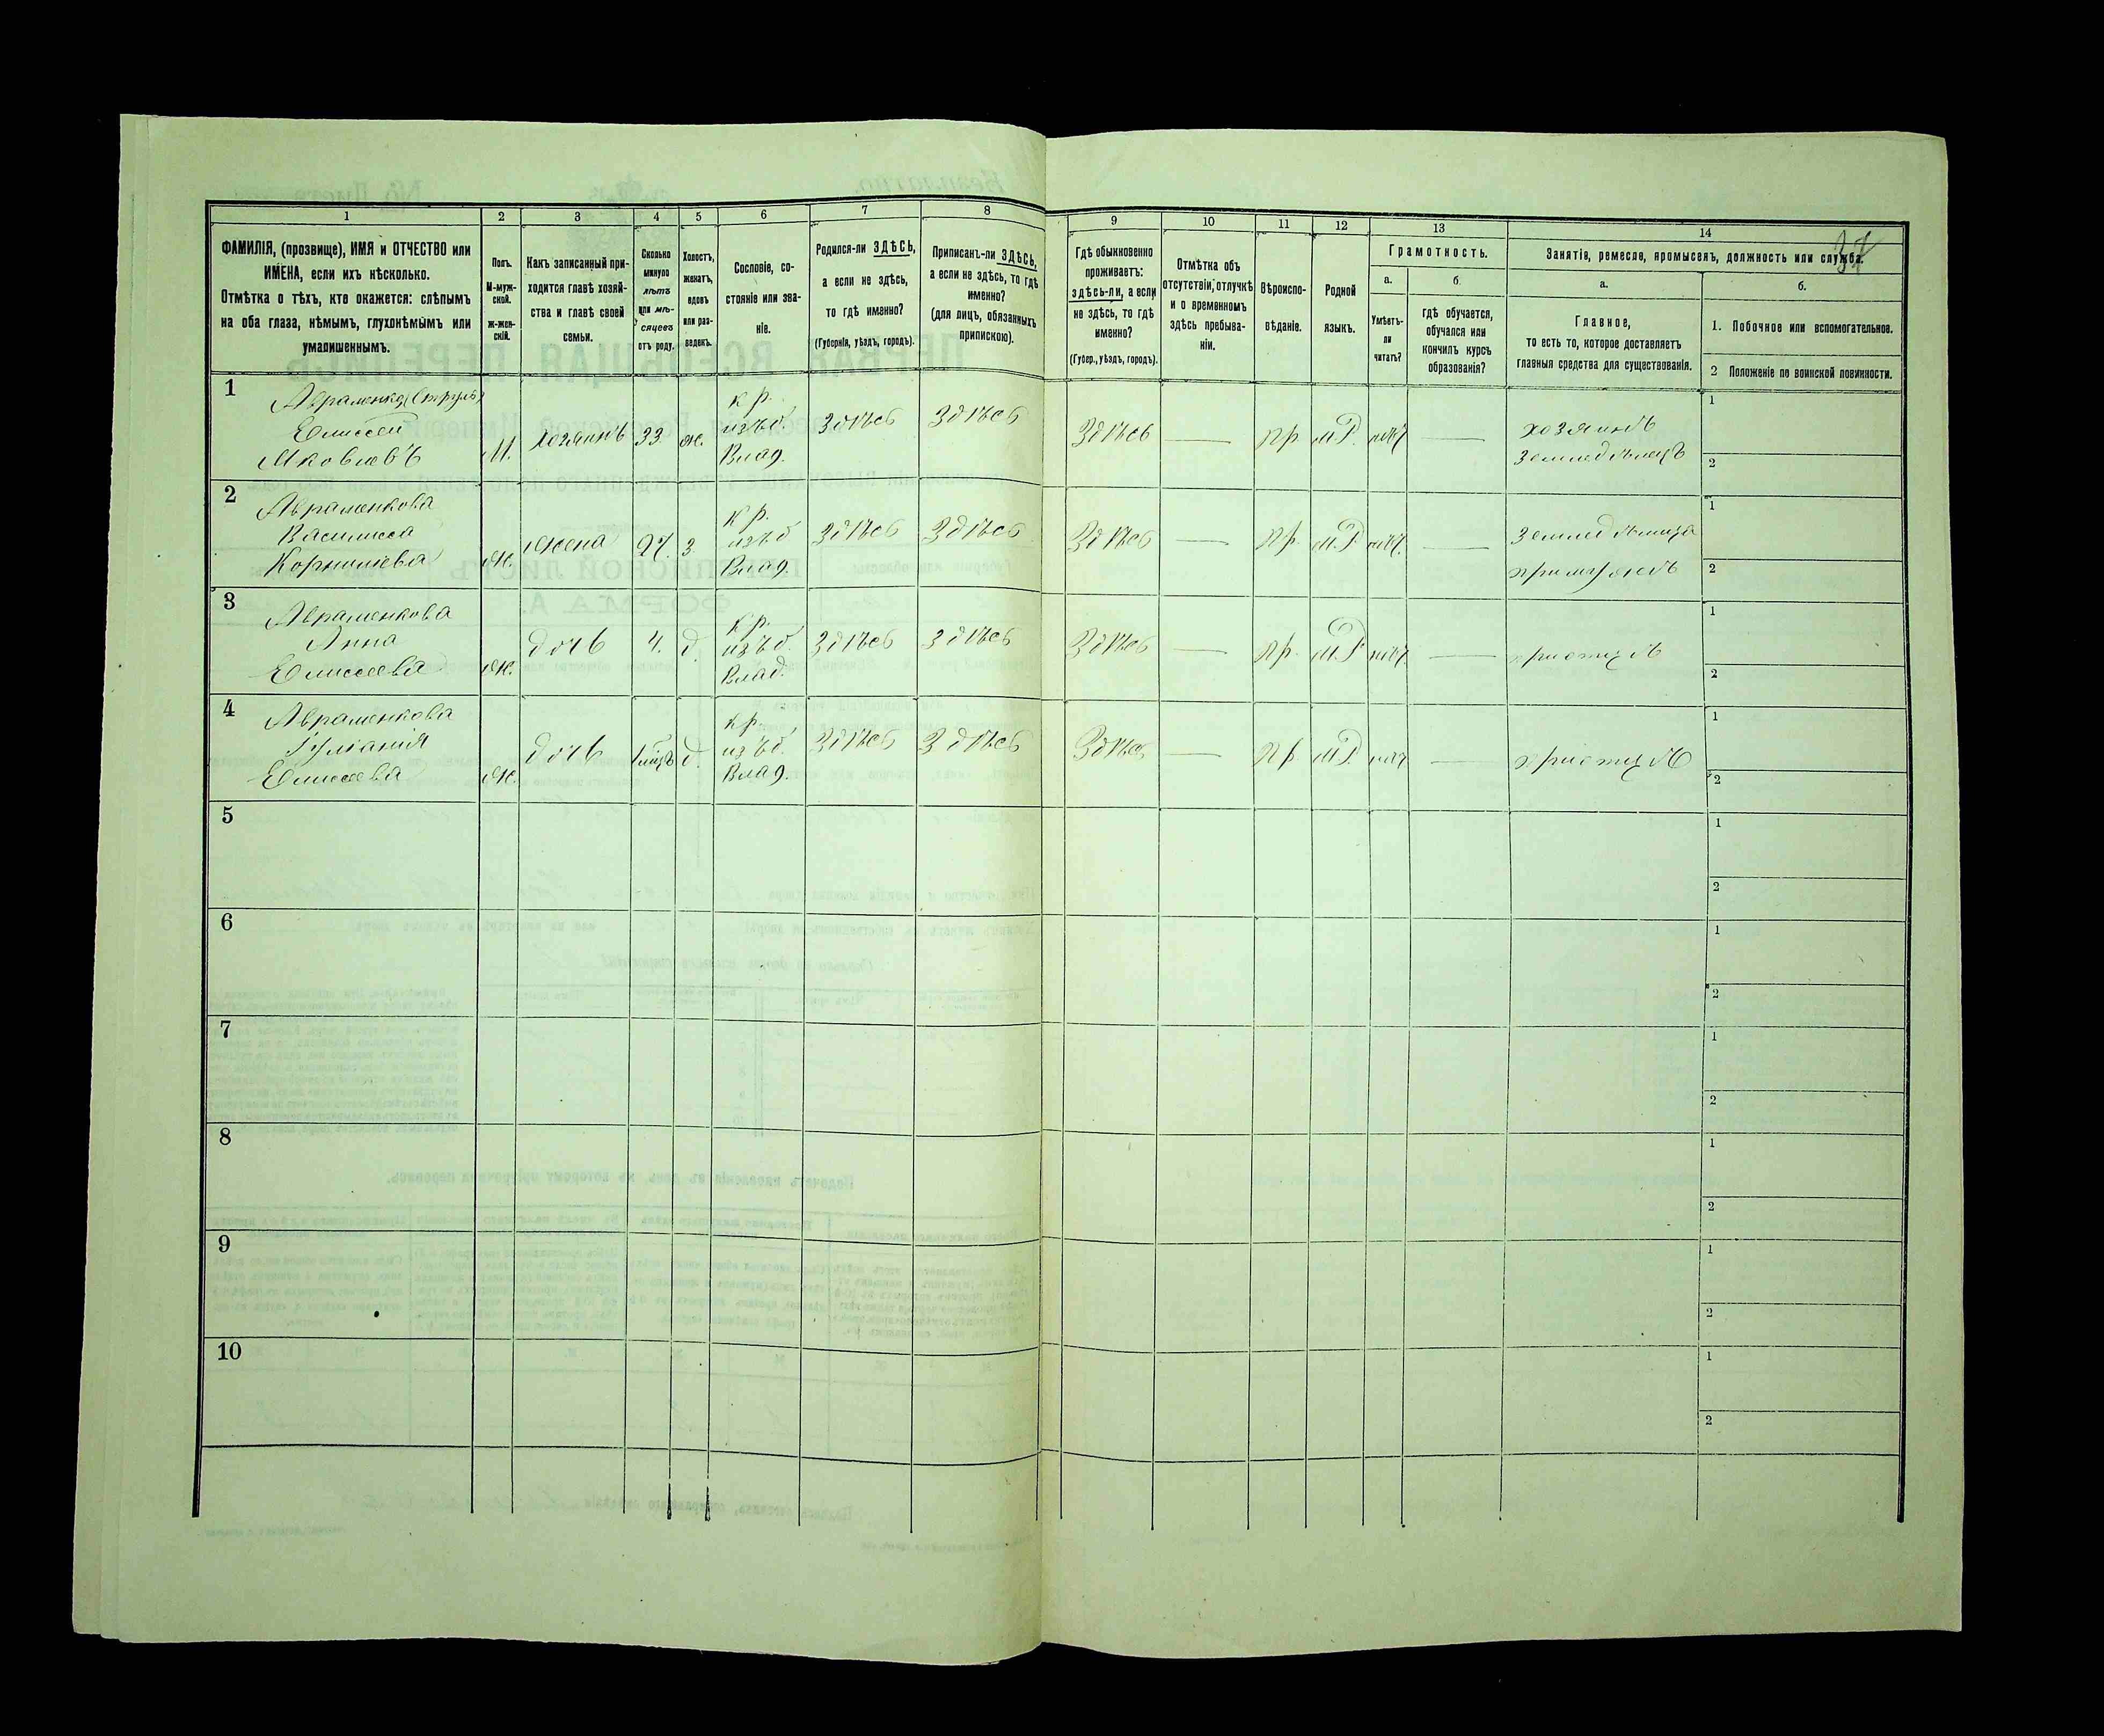 37
1 2 3 4 5 6 7 8 9 10 11 12 13 14
ФАМИЛІЯ, (прозвище), ИМЯ и ОТЧЕСТВО или
ИМЕНА, если ихъ нѣсколько.
Отмѣтка о тѣхъ, кто окажется: слѣпымъ
на оба глаза, нѣмымъ, глухонѣмымъ или
умалишеннымъ.
Полъ.
М-муж-
ской.
ж-жен-
скій.
Какъ записанный при-
ходится главѣ хозяй-
ства и главѣ своей
семьи.
Сколько
минуло
лѣтъ
или мѣ-
сяцевъ
отъ роду.
Холостъ,
женатъ,
вдовъ
или раз-
веденъ.
Сословіе, со-
стояніе или зва-
ніе.
Родился-ли ЗДѢСЬ,
а если не здѣсь,
то гдѣ именно?
(Губернія, уѣздъ, городъ).
Приписанъ-ли ЗДѢСЬ,
а если не здѣсь, то гдѣ
именно?
(для лицъ, обязанныхъ
припискою).
Гдѣ обыкновенно
проживаетъ:
здѣсь-ли, а если
не здѣсь, то гдѣ
именно?
(Губер., уѣздъ, городъ).
Отмѣтка объ
отсутствіи, отлучкѣ
и о временномъ
здѣсь пребыва-
ніи.
Вѣроиспо-
вѣданіе.
Родной
языкъ.
Грамотность.
а.
Умѣетъ-
ли
читать?
б.
гдѣ обучается,
обучался или
кончилъ курсъ
образованія?
Занятіе, ремесло, промыселъ, должность или служба.
а.
Главное,
то есть то, которое доставляетъ
главныя средства для существованія.
б.
1. Побочное или вспомогательное.
2 Положеніе по воинской повинности.
1
Авраменко
Елисей
Яковлевъ
М. хозяинъ 33 ж.
кр.
изъ б.
Влад.
Здѣсь Здѣсь Здѣсь — пр м.Р. нѣт —
хозяинъ
земледѣлецъ
1
2
2
Авраменкова
Василиса
Корнилiева
ж. жена 27. з
кр.
изъ б
Влад.
Здѣсь Здѣсь Здѣсь — пр. м.Р. нѣт. —
Земледѣлица
при мужѣ
1
2
3
Авраменкова
Анна
Елисеева
ж. дочь 4. д.
кр.
изъ б.
Влад.
Здѣсь Здѣсь Здѣсь — пр. м.Р нѣт. —
при отцѣ
1
2
4
Авраменкова
Елисеева
ж. дочь 1 мѣць д.
кр.
изъ б.
Влад.
Здѣсь Здѣсь Здѣсь — пр м.Р. нѣт —
при отцѣ
1
2
5
1
2
6
1
2
7
1
2
8
1
2
9
1
2
10
1
2